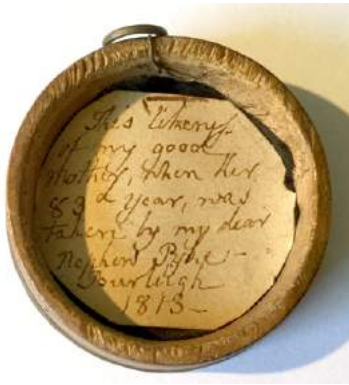 This likeness
of my good
mother, when Her
83d year, was
taken by my dear
Nephew
Burleigh
1813